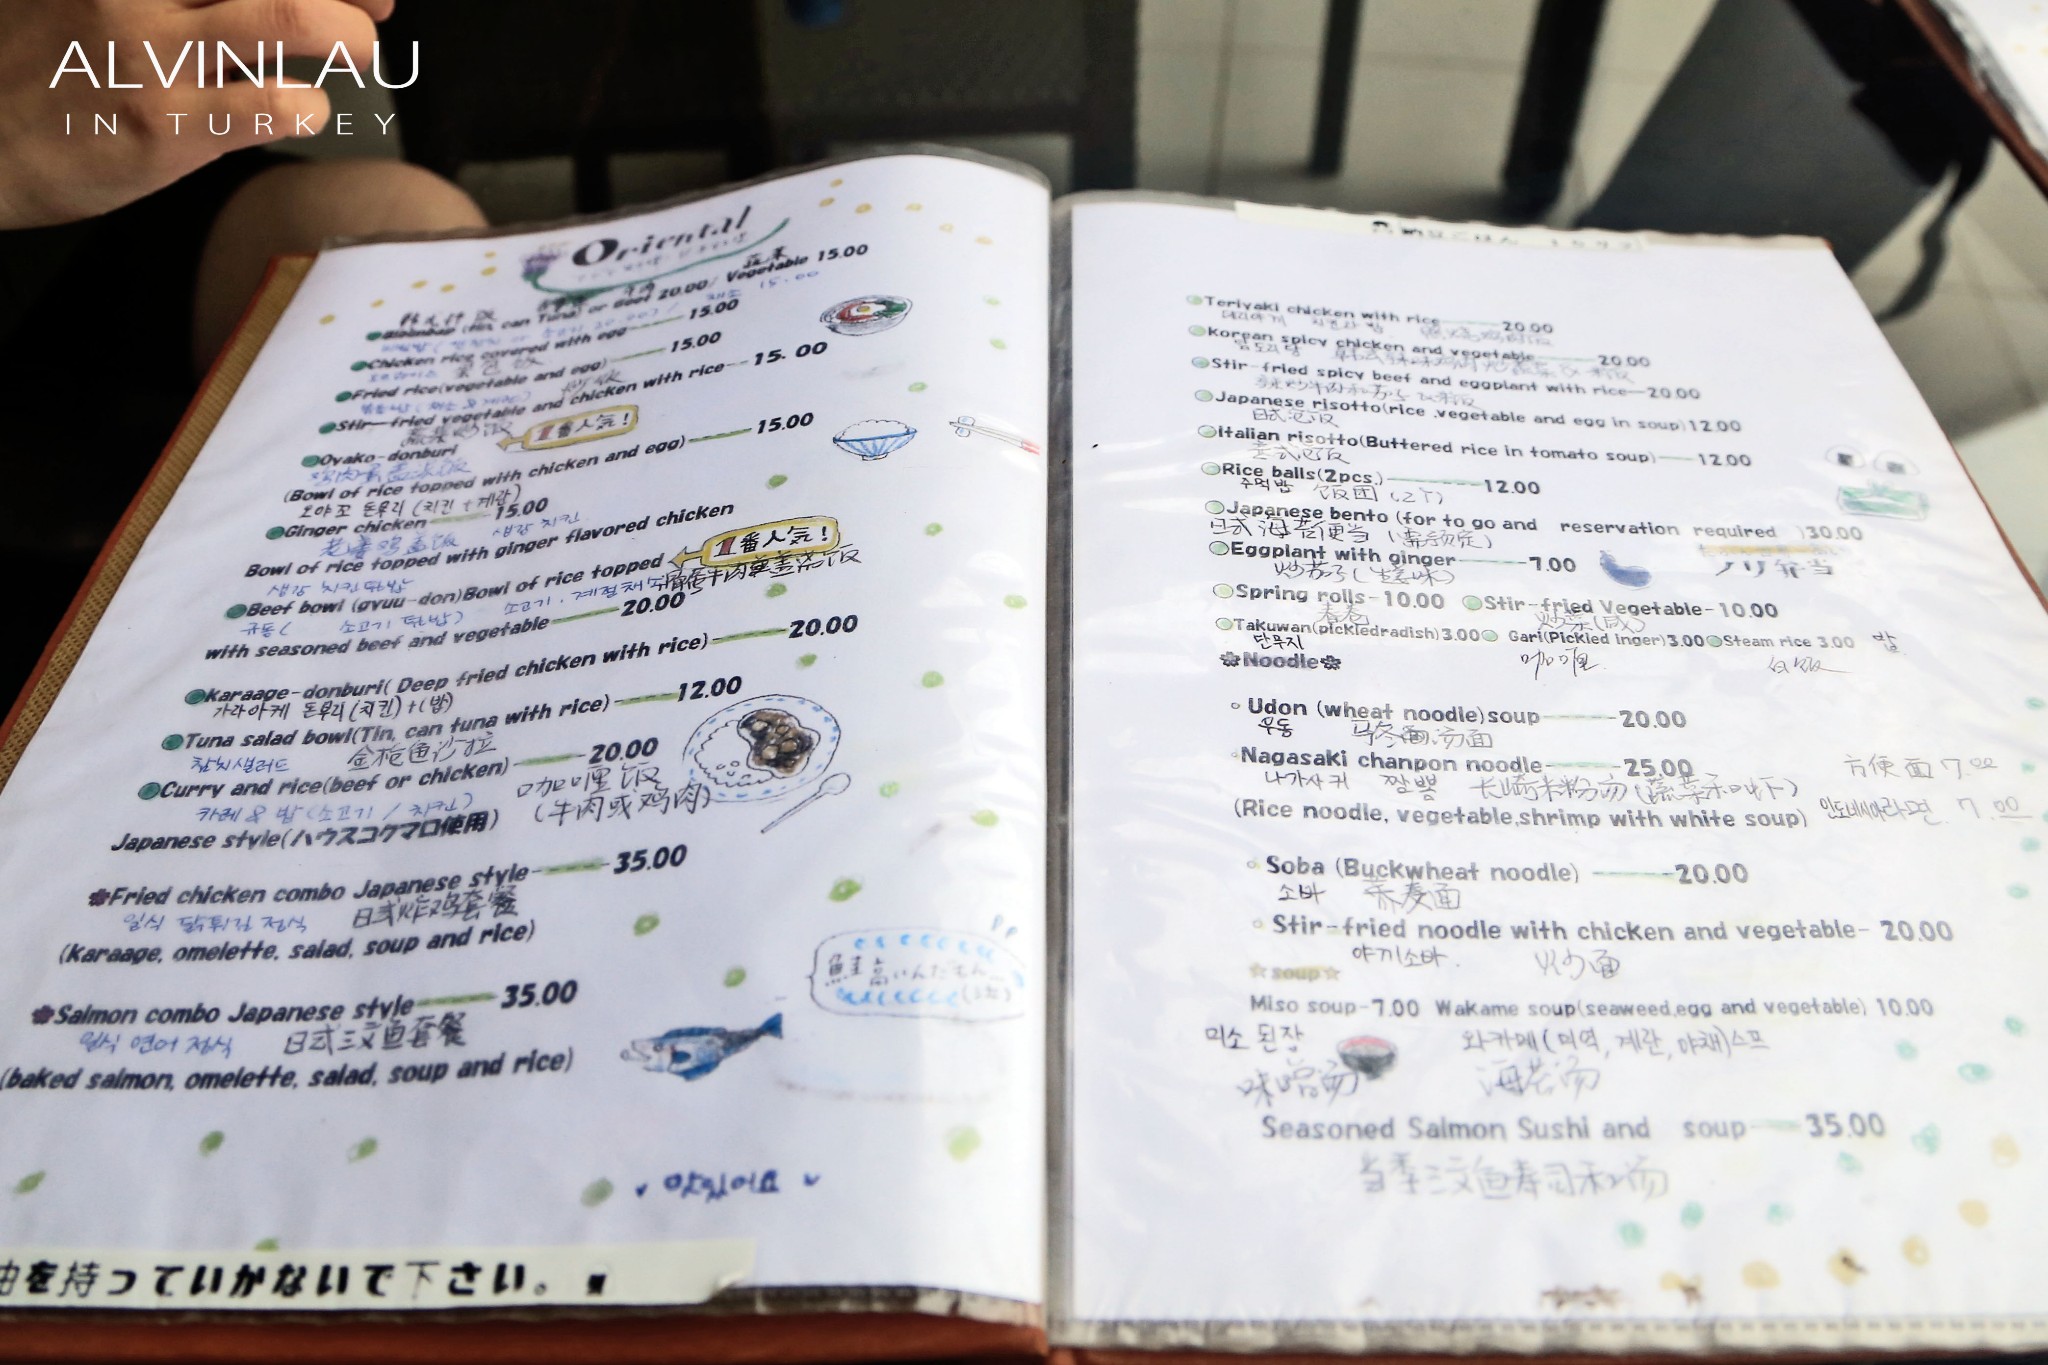 ALVINLAU
IN TURKEY
Oriental
Bibimbap (Tin, can Tuna) or Beef 20.00/ Vegetable 15.00
Chicken rice covered with egg 15.00
Fried rice(vegetable and egg) 15.00
炒饭
Stir-fried vegetable and chicken with rice 15.00
蔬菜鸡饭
1番人気!
Oyako-donburi
(Bowl of rice topped with chicken and egg) 15.00
오야꼬 돈부리 (치킨 + 계란)
Ginger chicken 15.00
생강 치킨
Bowl of rice topped with ginger flavored chicken
생강 치킨 덮밥
1番人気!
Beef bowl (gyuu-don)Bowl of rice topped
규동( 소고기 덮밥)
with seasoned beef and vegetable 20.00
Karaage-donburi( Deep fried chicken with rice) 20.00
가라아케 돈부리(치킨)+(밥)
Tuna salad bowl(Tin, can tuna with rice) 12.00
참치샐러드 金枪鱼沙拉
Curry and rice(beef or chicken) 20.00
카레 & 밥 (소고기 / 치킨) 咖喱饭
(牛肉或鸡肉)
Japanese style(ハウスコクマロ使用)
Fried chicken combo Japanese style 35.00
일식 닭튀김 정식 日式炸鸡套餐
(Karaage, omelette, salad, soup and rice)
Salmon combo Japanese style 35.00
일식 연어 정식 日式三文鱼套餐
(baked salmon, omelette, salad, soup and rice)
を持っていかないで下さい。
Teriyaki chicken with rice 20.00
Korean spicy chicken and vegetable 20.00
Stir-fried spicy beef and eggplant with rice 20.00
Japanese risotto(rice ,vegetable and egg in soup)12.00
日式泡饭
Italian risotto(Buttered rice in tomato soup) 12.00
意式泡饭
Rice balls(2pcs.) 12.00
주먹밥 饭团(2个)
Japanese bento (for to go and reservation required )30.00
日式海苔便当 (需预定)
ノリ弁当
Eggplant with ginger 7.00
炒茄子(生姜味)
Spring rolls-10.00 Stir-fried Vegetable-10.00
春卷 炒菜(咸)
Takuwan(pickledradish)3.00 Gari(Pickled inger)3.00 Steam rice 3.00 밥
단무지 咖喱 白饭
Noodle
Udon (wheat noodle)soup 20.00
우동 乌冬面汤面
Nagasaki chanpon noodle 25.00 方便面 7.00
나가사키 짬뽕 长崎米粉汤(蔬菜和虾)
(Rice noodle, vegetable,shrimp with white soup) 인도네시아라면 7.00
Soba (Buckwheat noodle) 20.00
소바 荞麦面
Stir-fried noodle with chicken and vegetable- 20.00
야끼소바. 炒面
☆soup☆
Miso soup-7.00 Wakame soup(seaweed,egg and vegetable) 10.00
미소 된장 와카메(미역, 계란, 야채)스프
味噌汤 海苔汤
Seasoned Salmon Sushi and soup 35.00
当季三文鱼寿司和汤